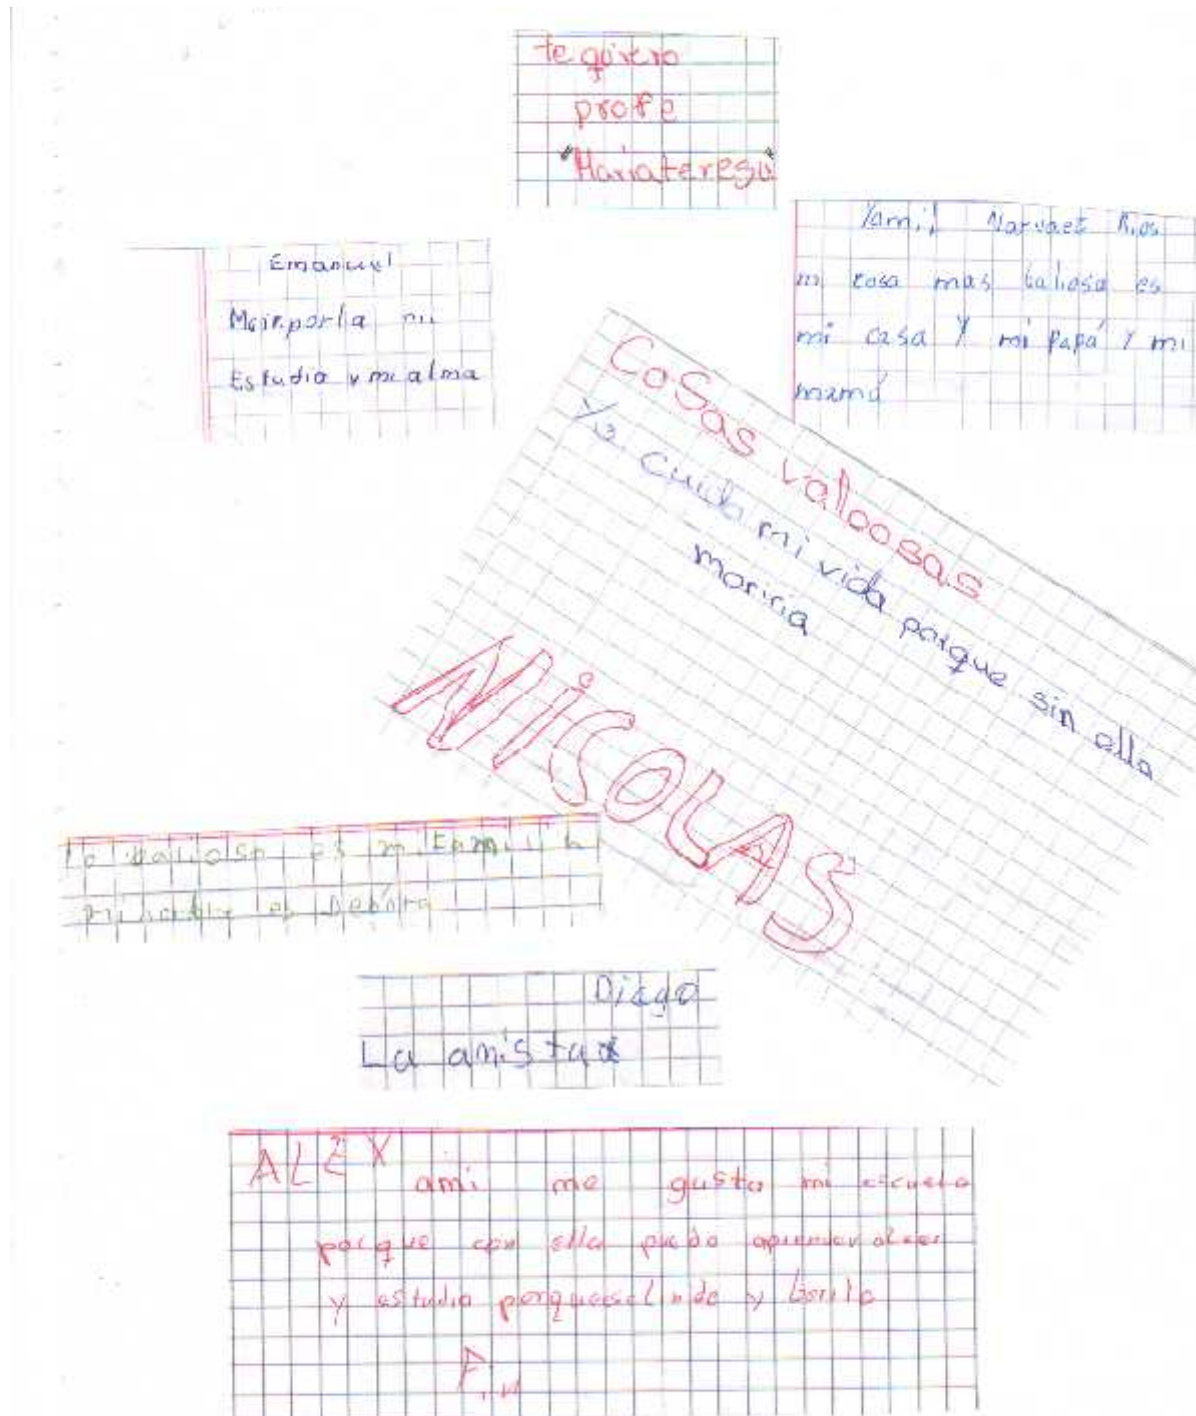 te quiero
profe
"Mariateresa"
Emanuel
Me importa mi
Estudio y mi alma
Yamil Narvaez Rios
mi cosa mas baliosa es
mi casa Y mi papá Y mi
mamá
Cosas valoosas
Yo cuido mi vida porque sin ella
moriria
NICOLAS
lo balioso es mi familia
mi nombre es Debora
Diego
La amistad
ALEX ami me gusta mi escuela
porque con ella puedo
y estudio porque es linda y bonita
Fin